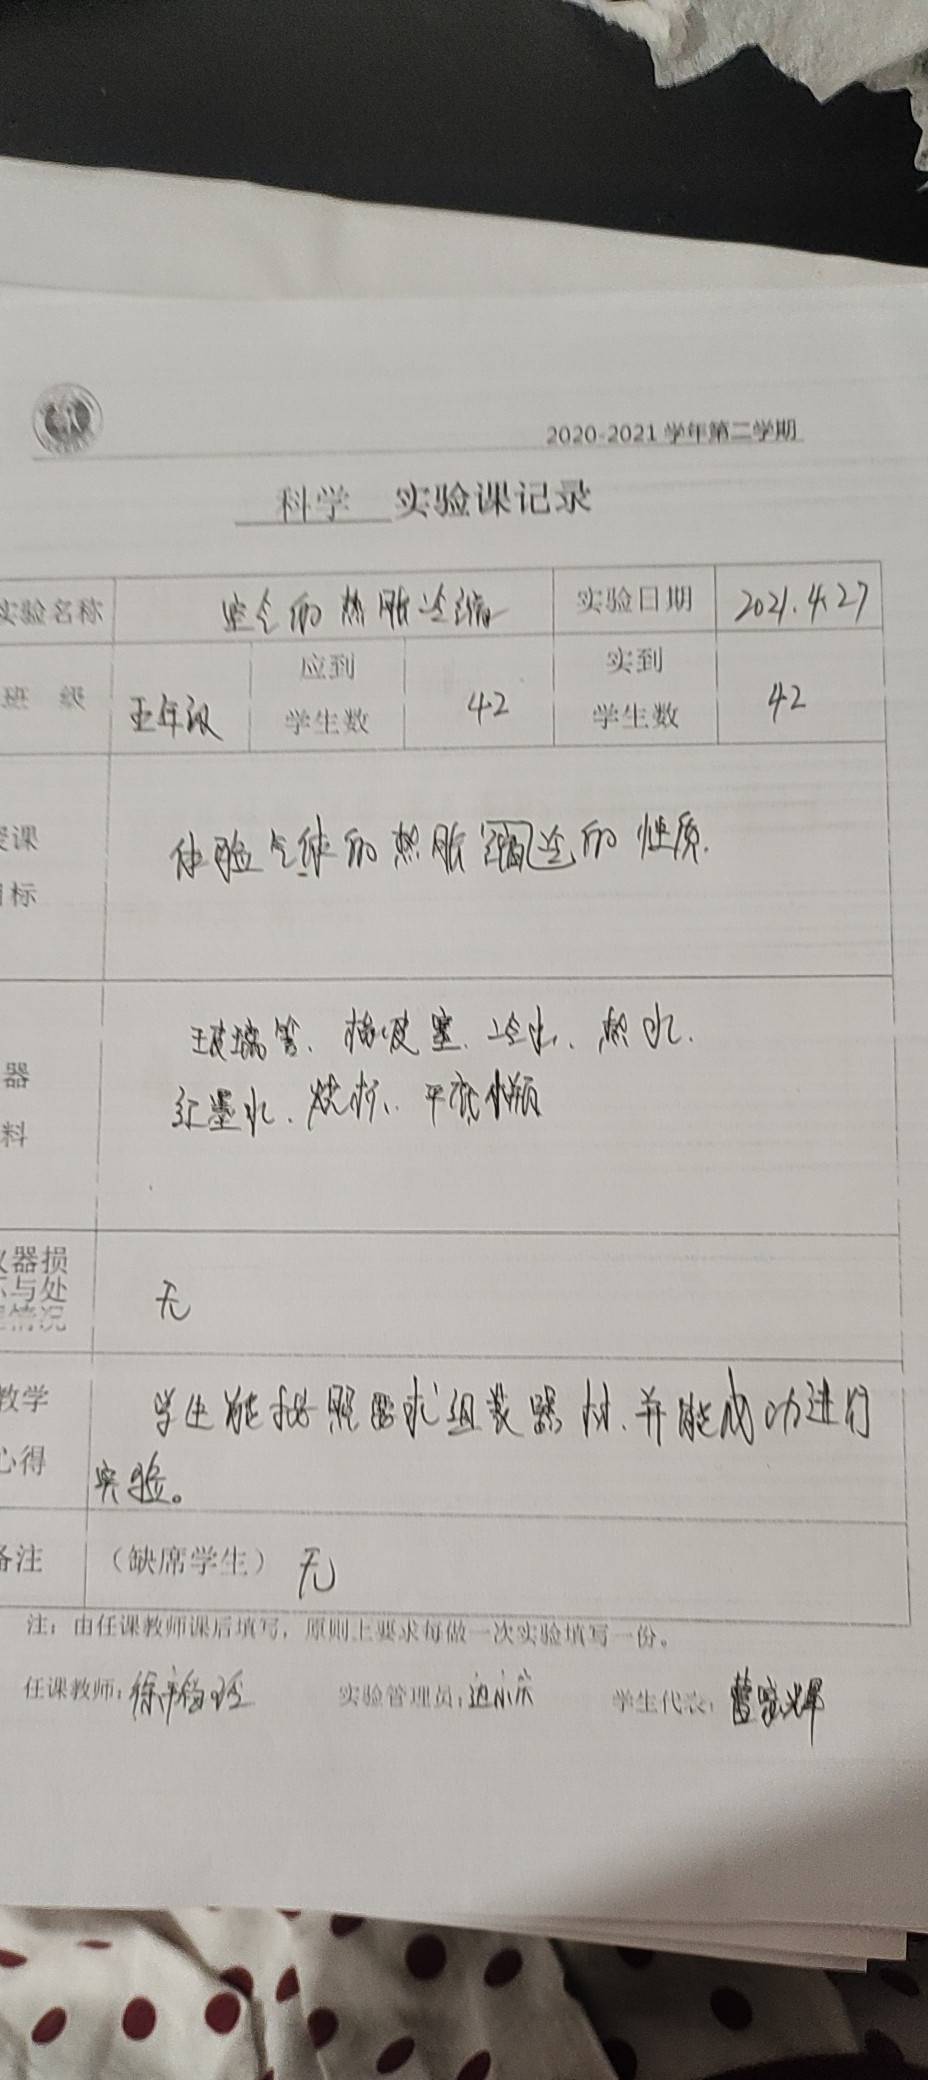 2020-2021 学年第二学期
科学 实验课记录
实验名称 空气的热胀冷缩 实验日期 2021.4.27
班 级 五年级 应到学生数 42 实到学生数 42
课 体验气体的热胀缩冷的性质.
标
器 玻璃管、橡皮塞、冷水、热水.
料 红墨水、烧杯、平底烧瓶
仪器损
坏与处
情况 无
教学 学生能按照要求组装器材、并能成功进行
心得 实验。
备注 (缺席学生) 无
注：由任课教师课后填写，原则上要求每做一次实验填写一份。
任课教师： 实验管理员： 学生代表：